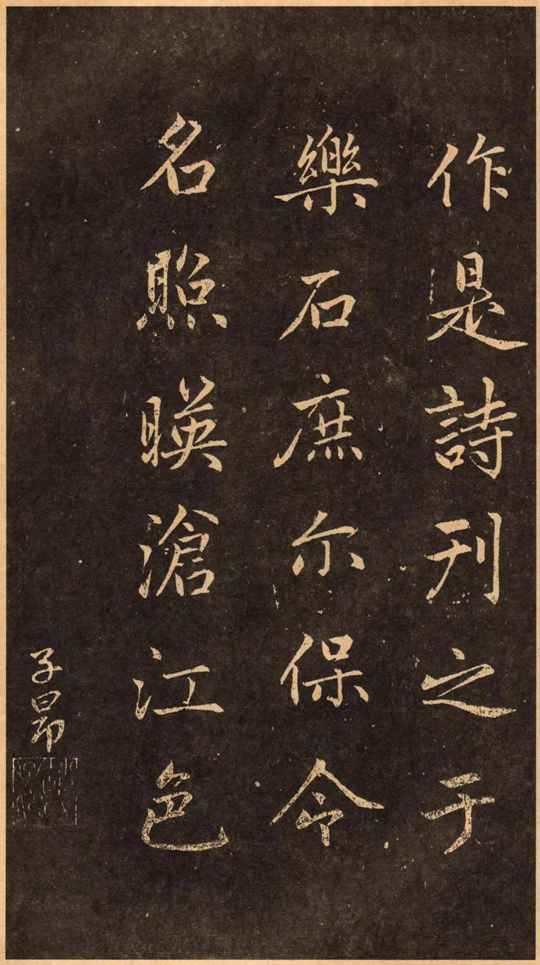 作是詩刊之于
樂石庶尓保令
名照暎滄江色
子昂